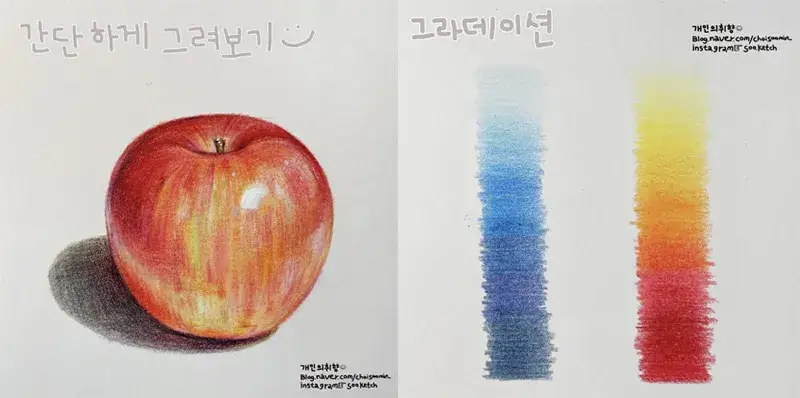 간단하게 그려보기
개인의취향
Blog.naver.com/choisoomin_
instagram@soo.ketch
그라데이션
개인의취향
Blog.naver.com/choisoomin_
instagram@soo.ketch